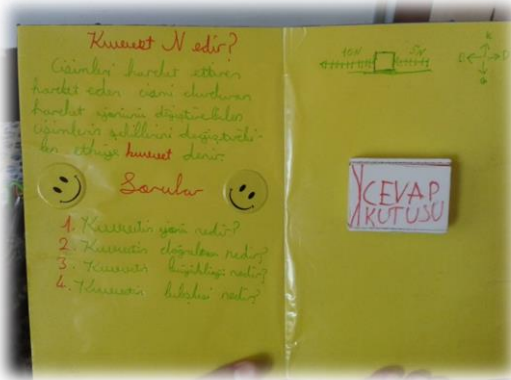 Kuvvet Nedir?
Cisimleri hareket ettiren
hareket eden cismi durduran
hareket yönünü değiştirebilen
cisimlerin şekillerini değiştirebi-
len etkiye kuvvet denir.
Sorular
1. Kuvvetin yönü nedir?
2. Kuvvetin doğrultusu nedir?
3. Kuvvetin büyüklüğü nedir?
4. Kuvvetin bileşkesi nedir?
10N 5N
K
B D
G
CEVAP
KUTUSU